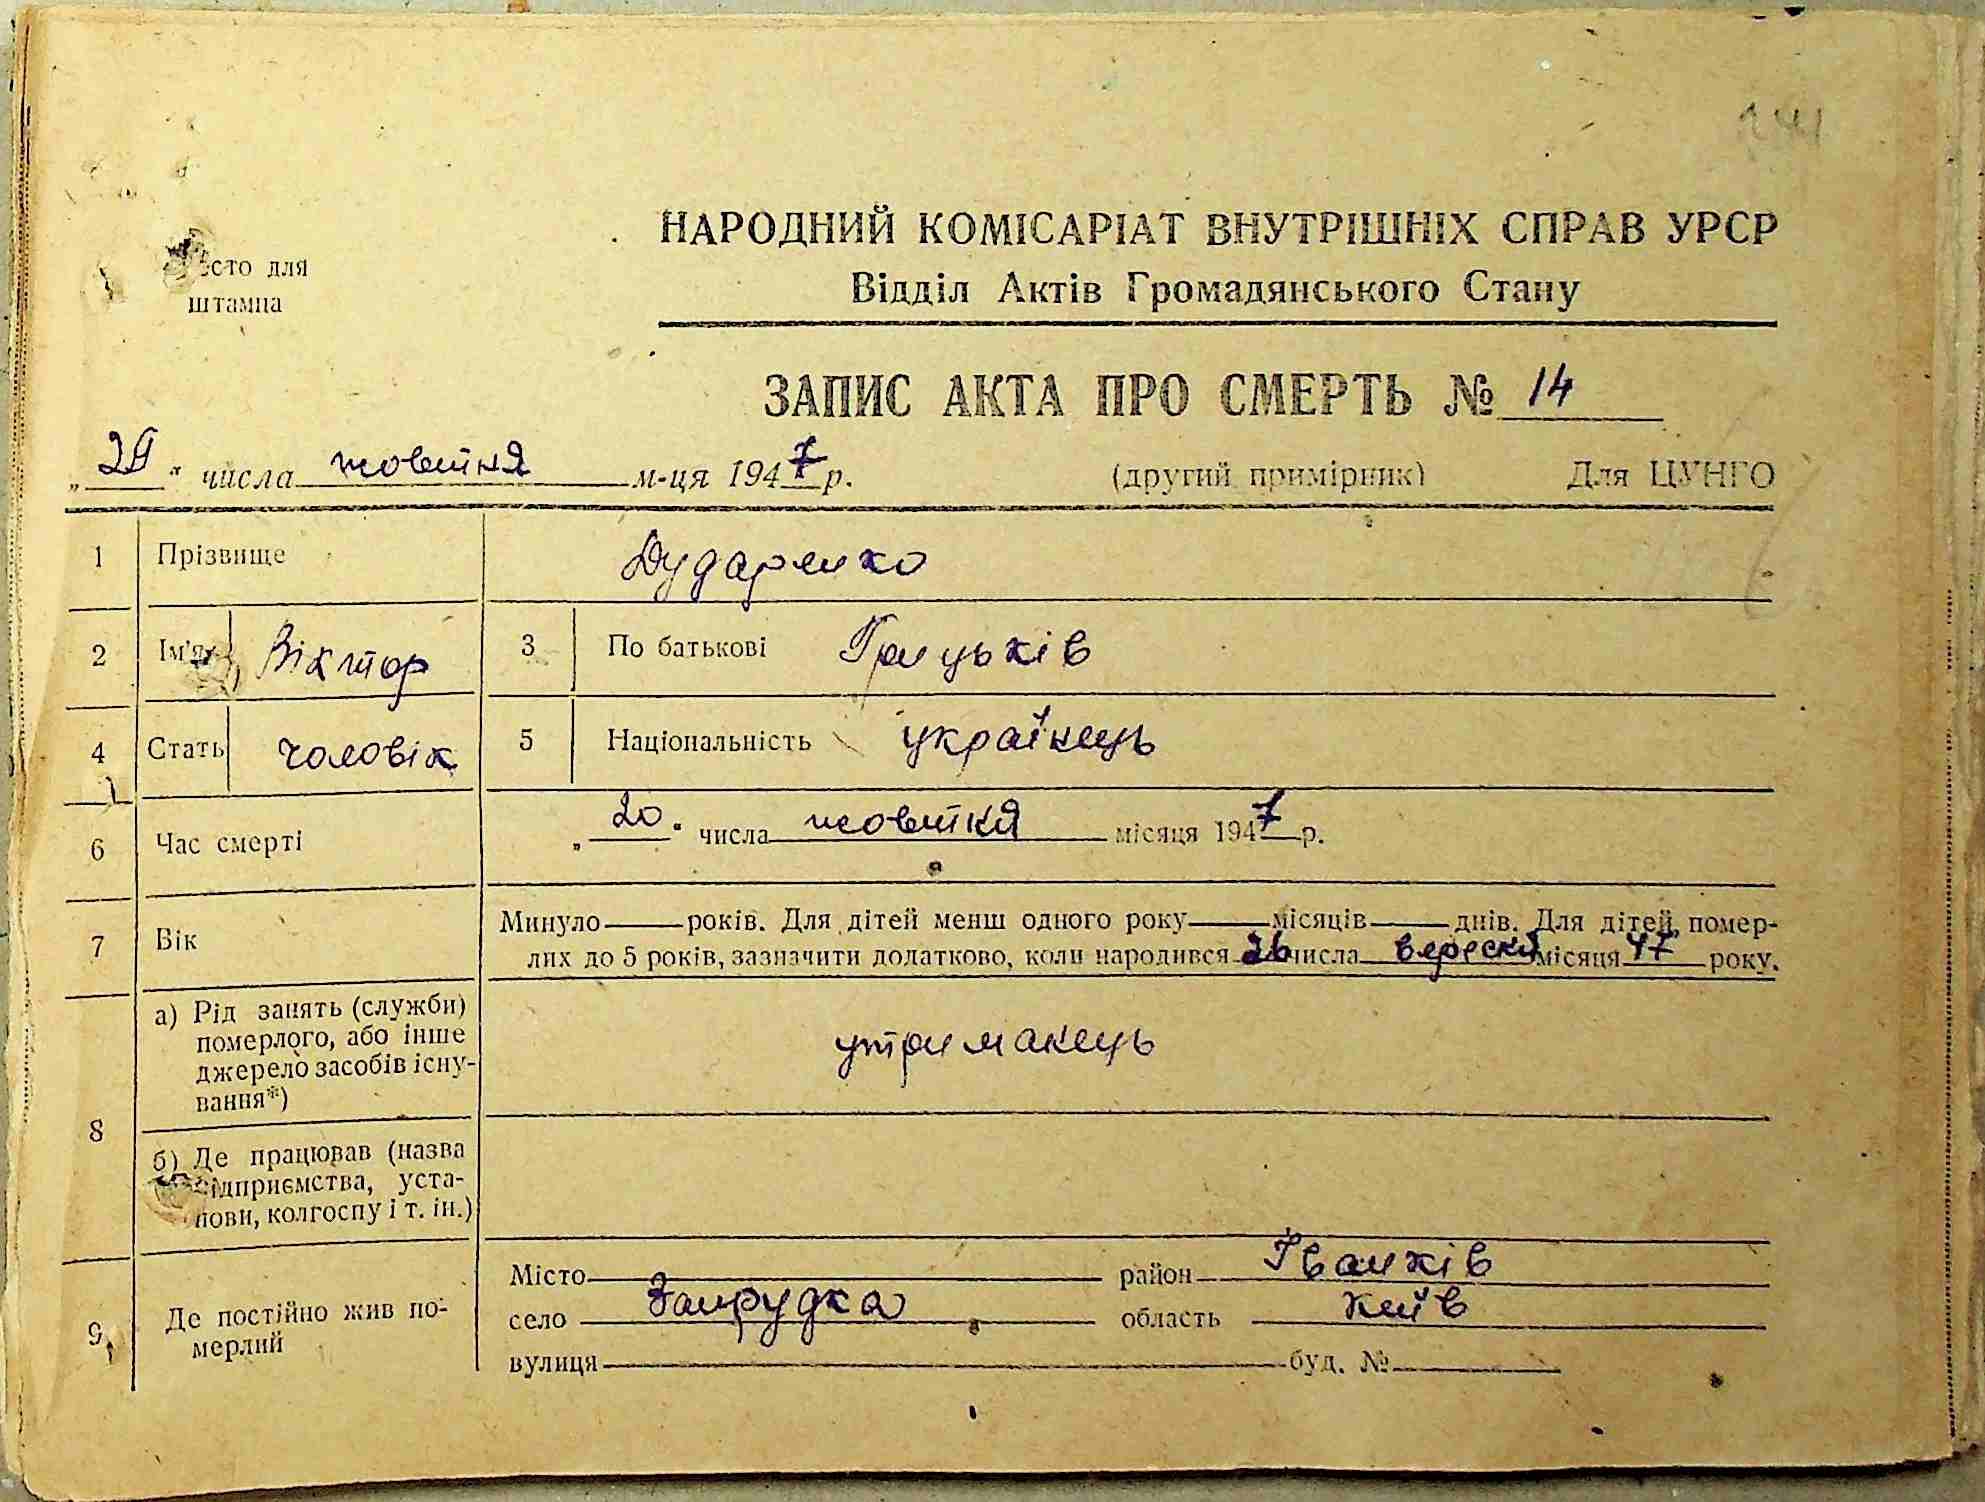 241
НАРОДНИЙ КОМІСАРІАТ ВНУТРІШНІХ СПРАВ УРСР
Відділ Актів Громадянського Стану
сто для
штампа
ЗАПИС АКТА ПРО СМЕРТЬ № 14
„29" числа жовтня м-ця 1947 р. (другий примірник) Для ЦУНГО
1 Прізвище Дударенко
2 Ім'я Віктор 3 По батькові Грицьків
4 Стать чоловік 5 Національність українець
6 Час смерті „20" числа жовтня місяця 1947 р.
7 Вік Минуло років. Для дітей менш одного року місяців днів. Для дітей, помер-
лих до 5 років, зазначити додатково, коли народився 26 числа вересня місяця 47 року.
8 а) Рід занять (служби)
померлого, або інше
джерело засобів існу-
вання*)
утриманець
б) Де працював (назва
підприємства, уста-
нови, колгоспу і т. ін.)
9 Де постійно жив по-
мерлий
Місто район Іванків
село Запрудка область Київ
вулиця буд. №